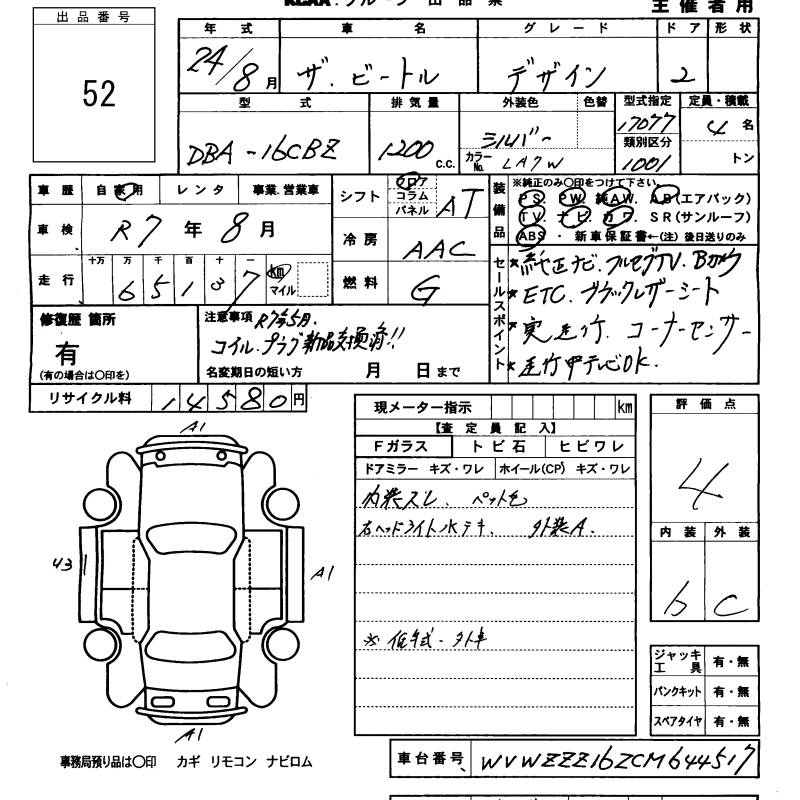 KCAA グループ 出品票
主催者用
出品番号
52
年式 車名 グレード ドア 形状
24/8月 ザ・ビートル デザイン 2
型式 排気量 外装色 色替 型式指定 定員・積載
17077 4名
DBA-16CBZ 1200 c.c. シルバー 類別区分
カラーNo. LA7W 1001 トン
車歴 自家用 レンタ 事業.営業車
シフト フロア コラム パネル AT
車検 R7年8月
冷房 AAC
走行 十万 万 千 百 十 一
65137 km マイル
燃料 G
装備品
※純正のみ〇印をつけて下さい。
PS. PW. 純AW. AB(エアバック)
TV. ナビ. カワ. SR(サンルーフ)
ABS ・ 新車保証書←(注)後日送りのみ
セールスポイント
*純正ナビ.フルセグTV.Bカメラ
*ETC.ブラックレザーシート
*実走行.コーナーセンサー
*走行中テレビOK.
修復歴 箇所
有
(有の場合は〇印を)
注意事項 R7年5月.
コイル.プラグ新品交換済!!
名変期日の短い方 月 日まで
リサイクル料 14580円
現メーター指示 km
【査定員記入】
Fガラス トビ石 ヒビワレ
ドアミラー キズ・ワレ ホイール(CP) キズ・ワレ
内装スレ.
右ヘッドライト水テキ. 外装A.
※低年式・外車
評価点
4
内装 外装
b C
ジャッキ 工具 有・無
パンクキット 有・無
スペアタイヤ 有・無
A1
43
A1
A1
事務局預り品は〇印 カギ リモコン ナビロム
車台番号 WVWZZZ16ZCM644517